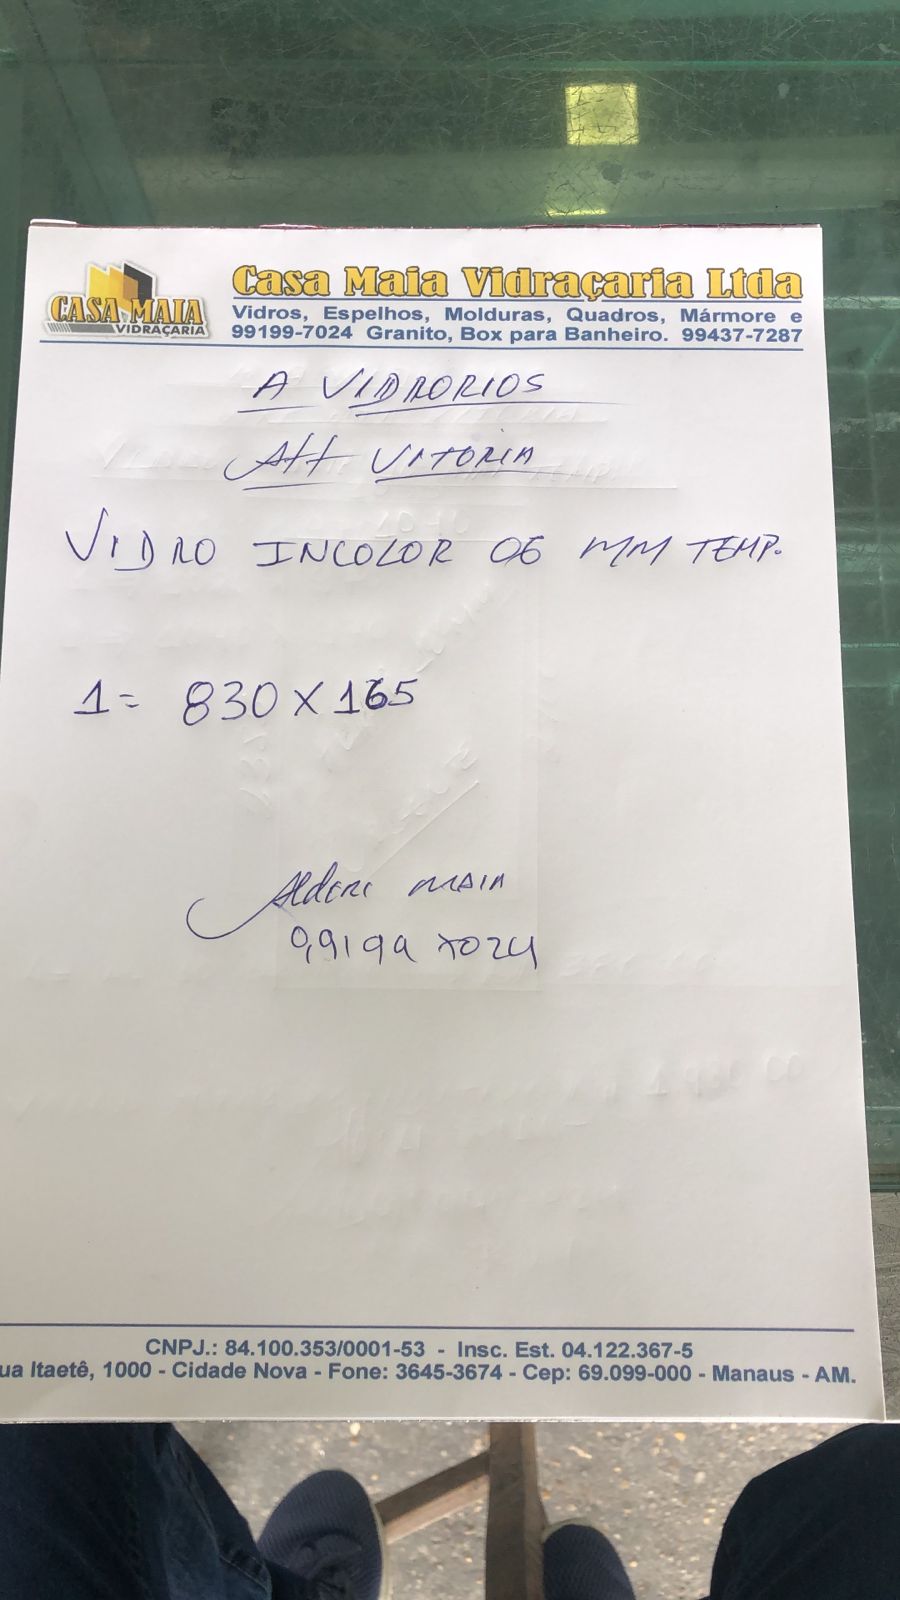 CASA MAIA
VIDRAÇARIA
Casa Maia Vidraçaria Ltda
Vidros, Espelhos, Molduras, Quadros, Mármore e
99199-7024 Granito, Box para Banheiro. 99437-7287
A VIDRORIOS
Att VITORIA
VIDRO INCOLOR 06 MM TEMP.
1= 830 X 165
MAIA
99199 7024
CNPJ.: 84.100.353/0001-53 - Insc. Est. 04.122.367-5
ua Itaetê, 1000 - Cidade Nova - Fone: 3645-3674 - Cep: 69.099-000 - Manaus - AM.